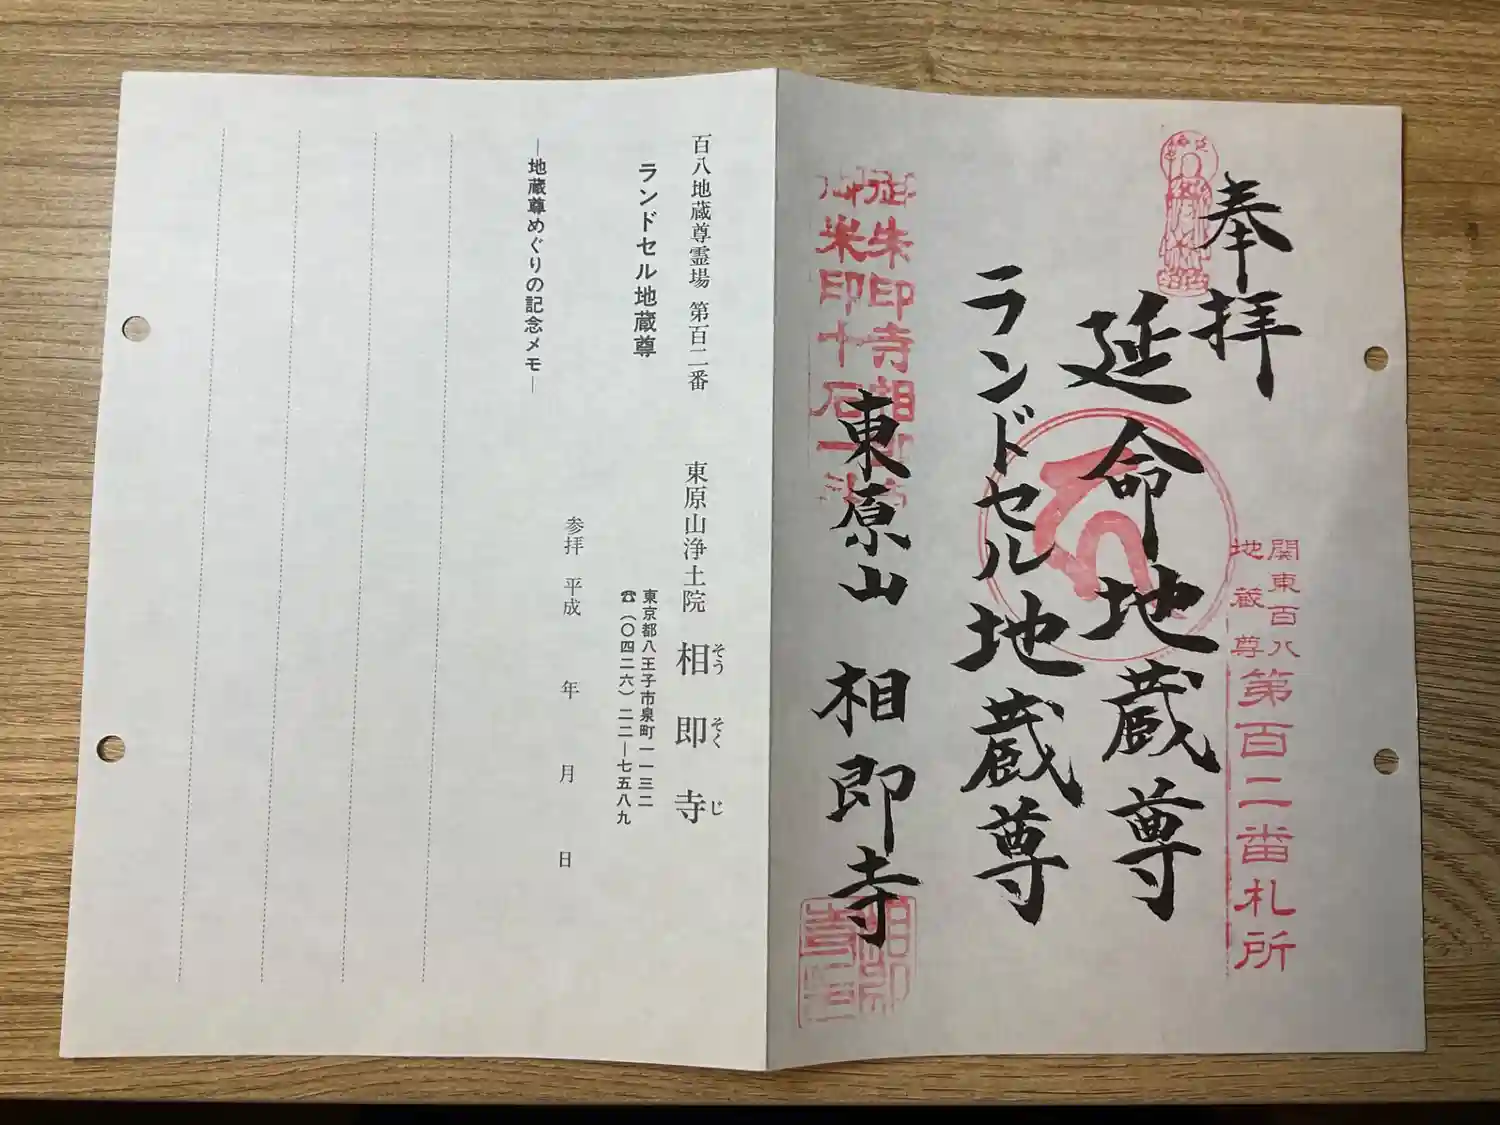 奉拝
延命地蔵尊
ランドセル地蔵尊
東原山 相即寺
関東百八
地蔵尊
第百二番札所
御朱印寺相即寺
御米印十石一斗
百八地蔵尊霊場 第百二番 東原山浄土院 相即寺
そう そく じ
ランドセル地蔵尊
東京都八王子市泉町一一三二
☎(〇四二六)二二―七五八九
参拝 平成 年 月 日
―地蔵尊めぐりの記念メモ―